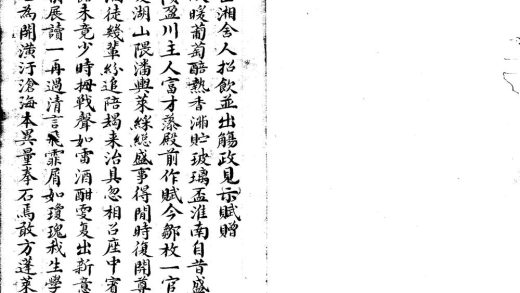 湘舍人招飲並出觴政見示賦贈
暖葡萄醅熱香滿貯玻璃盃淮南自昔盛
盈川主人富才藻殿前作賦今鄒枚一官
湖山隈潘輿萊綵総盛事得閒時復開尊
徒幾輩紛追陪朅来治具忽相召座中賓
未竟少時拇戰聲如雷酒酣更复出新意
展讀一再過清言飛霏屑如瓊瑰我生學
為開潢汙滄海本異量拳石焉敢方蓬萊